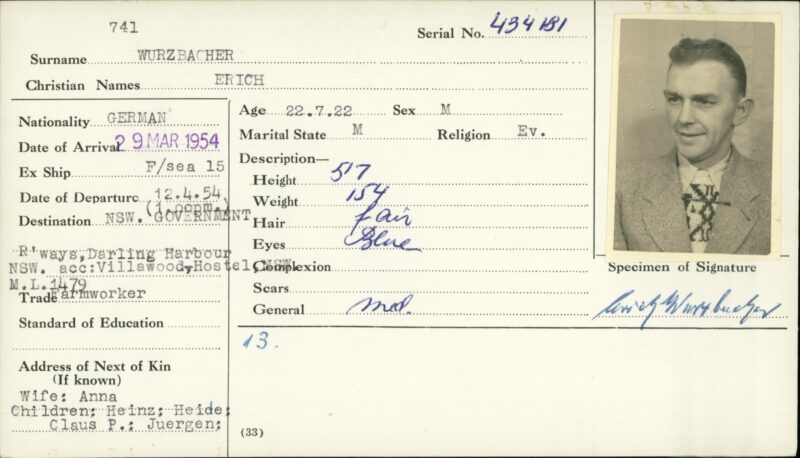 741
Serial No. 434181
Surname WURZBACHER
Christian Names ERICH
Nationality GERMAN
Date of Arrival 29 MAR 1954
Ex Ship F/sea 15
Date of Departure 12.4.54
(1.oopm.)
Destination NSW. GOVERNMENT
R'ways,Darling Harbour
NSW. acc:Villawood,Hostel,NSW.
M.L.1479
Trade Farmworker
Standard of Education
Address of Next of Kin
(If known)
Wife: Anna
Children; Heinz; Heide;
Claus P.; Juergen;
Age 22.7.22 Sex M
Marital State M Religion Ev.
Description—
Height 5'7
Weight 154
Hair fair
Eyes Blue
Complexion
Scars
General med.
13.
(33)
Specimen of Signature
Erich Wurzbacher